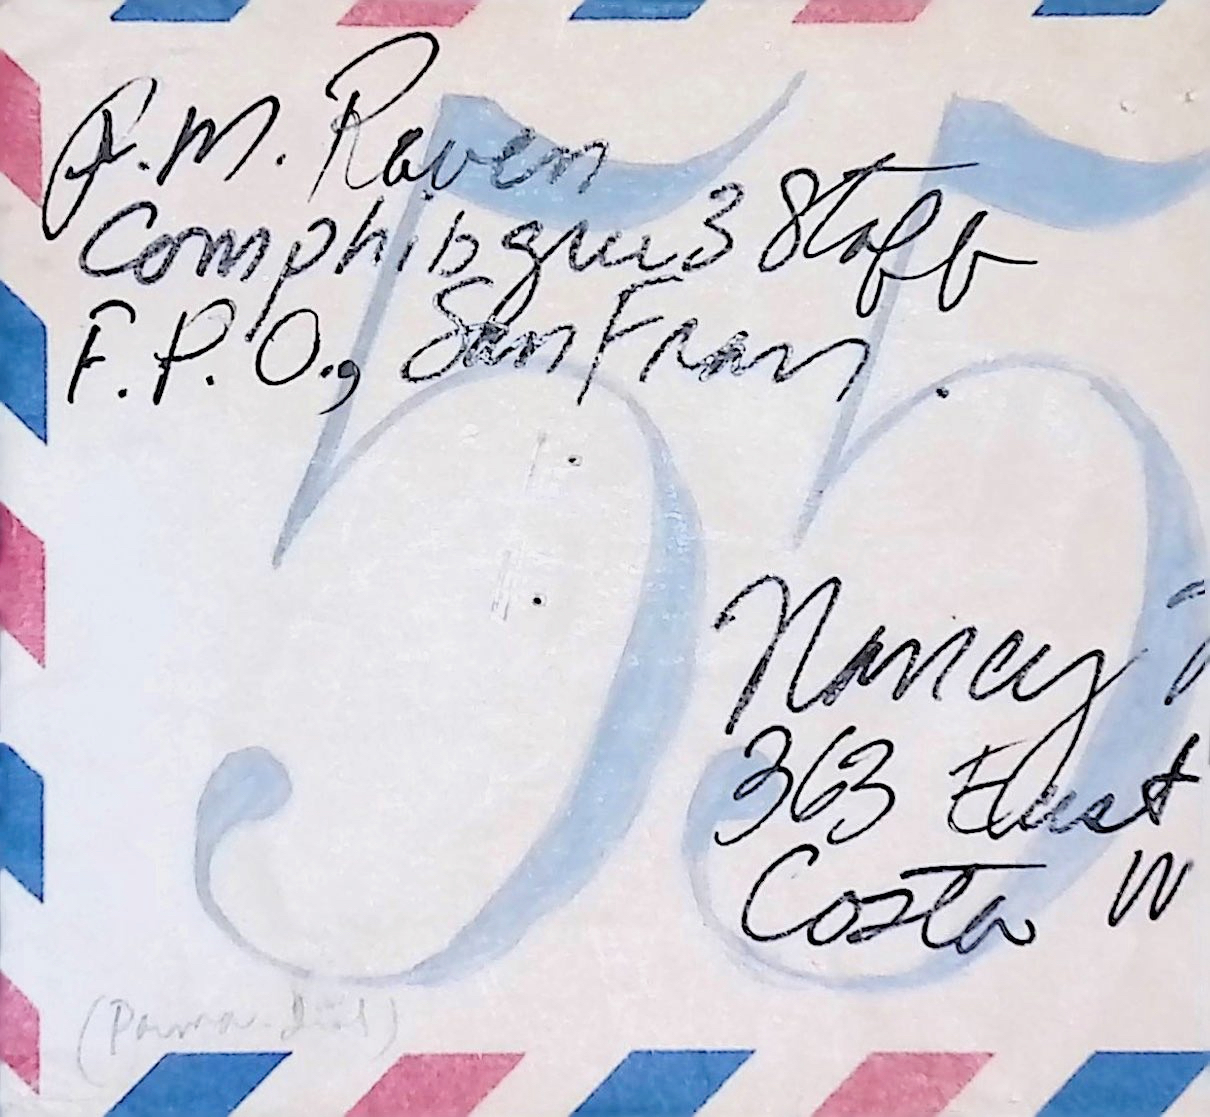 A. M. Raven
Comphibgru 3 Staff
F.P.O., San Fran.
55
Nancy
363 East
Costa M